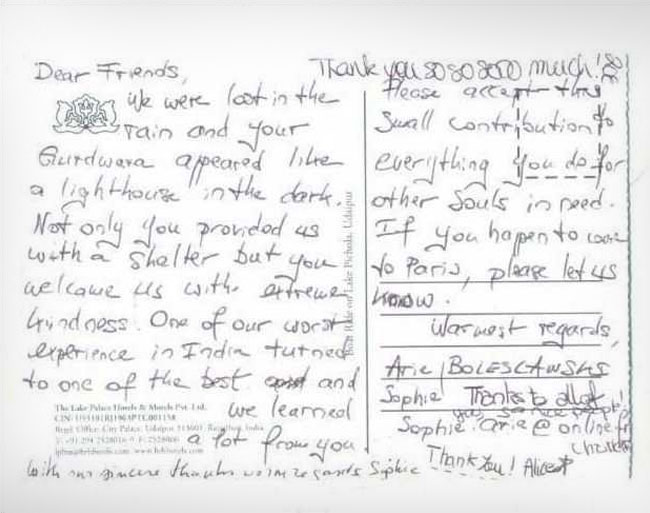 Dear Friends,
We were lost in the
rain and your
Gurdwara appeared like
a lighthouse in the dark.
Not only you provided us
with a shelter but you
welcome us with extreme
kindness. One of our worst
experience in India turned
to one of the best and
we learned
a lot from you
With our sincere thanks warm regards Sophie
The Lake Palace Hotels & Motels Pvt. Ltd.
Regd. Office: City Palace, Udaipur 313001, Rajasthan, India
Boat Ride on Lake Pichola, Udaipur
Thank you so so sooo much!
Please accept this
small contribution to
everything you do for
other souls in need.
If you happen to come
to Paris, please let us
know.
Warmest regards,
Arie BOLESLAWSKI
Sophie Thanks to all of
you so nice people!
Sophie.arie@online.fr
Charles
Thank You! Alice